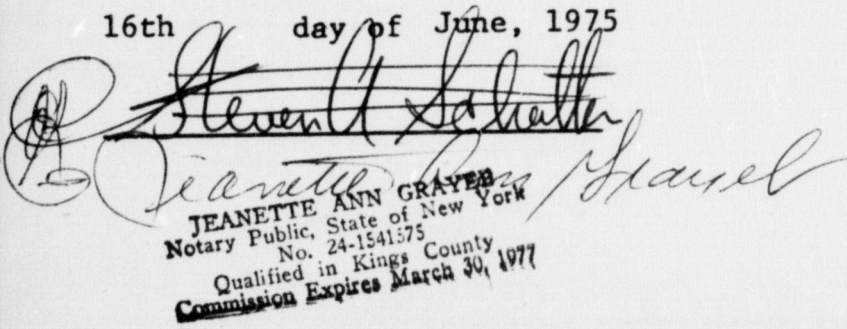 16th day of June, 1975
Steven A Schatten
Jeanette Ann Grayeb
JEANETTE ANN GRAYEB
Notary Public, State of New York
No. 24-1541575
Qualified in Kings County
Commission Expires March 30, 1977